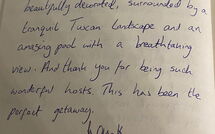 beautifully decorated, surrounded by a
tranquil Tuscan landscape and an
amazing pool with a breathtaking
view. And thank you for being such
wonderful hosts. This has been the
perfect getaway.